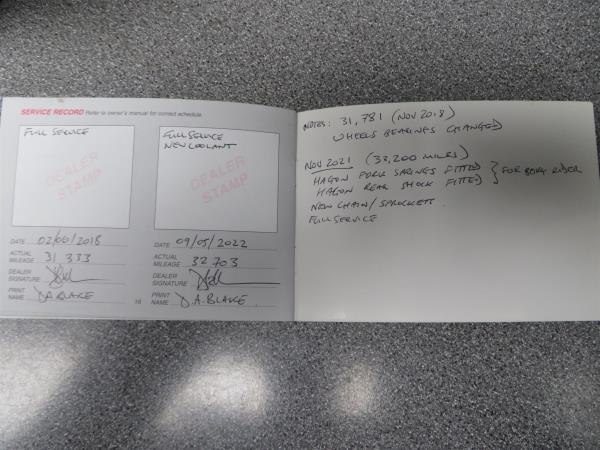 SERVICE RECORD Refer to owner's manual for correct schedule.
FULL SERVICE
DEALER
STAMP
DATE 02/00/2018
ACTUAL
MILEAGE 31 333
DEALER
SIGNATURE
PRINT
NAME D.A BLAKE
FULL SERVICE
NEW COOLANT
DEALER
STAMP
DATE 09/05/2022
ACTUAL
MILEAGE 32 703
DEALER
SIGNATURE
PRINT
NAME D.A. BLAKE
16
NOTES: 31,781 (NOV 2018)
WHEELS BEARINGS CHANGED
NOV 2021 (33,200 MILES)
HAGON FORK SPRINGS FITTED
HAGON REAR SHOCK FITTED } FOR RIDER
NEW CHAIN/SPROCKETT.
FULL SERVICE